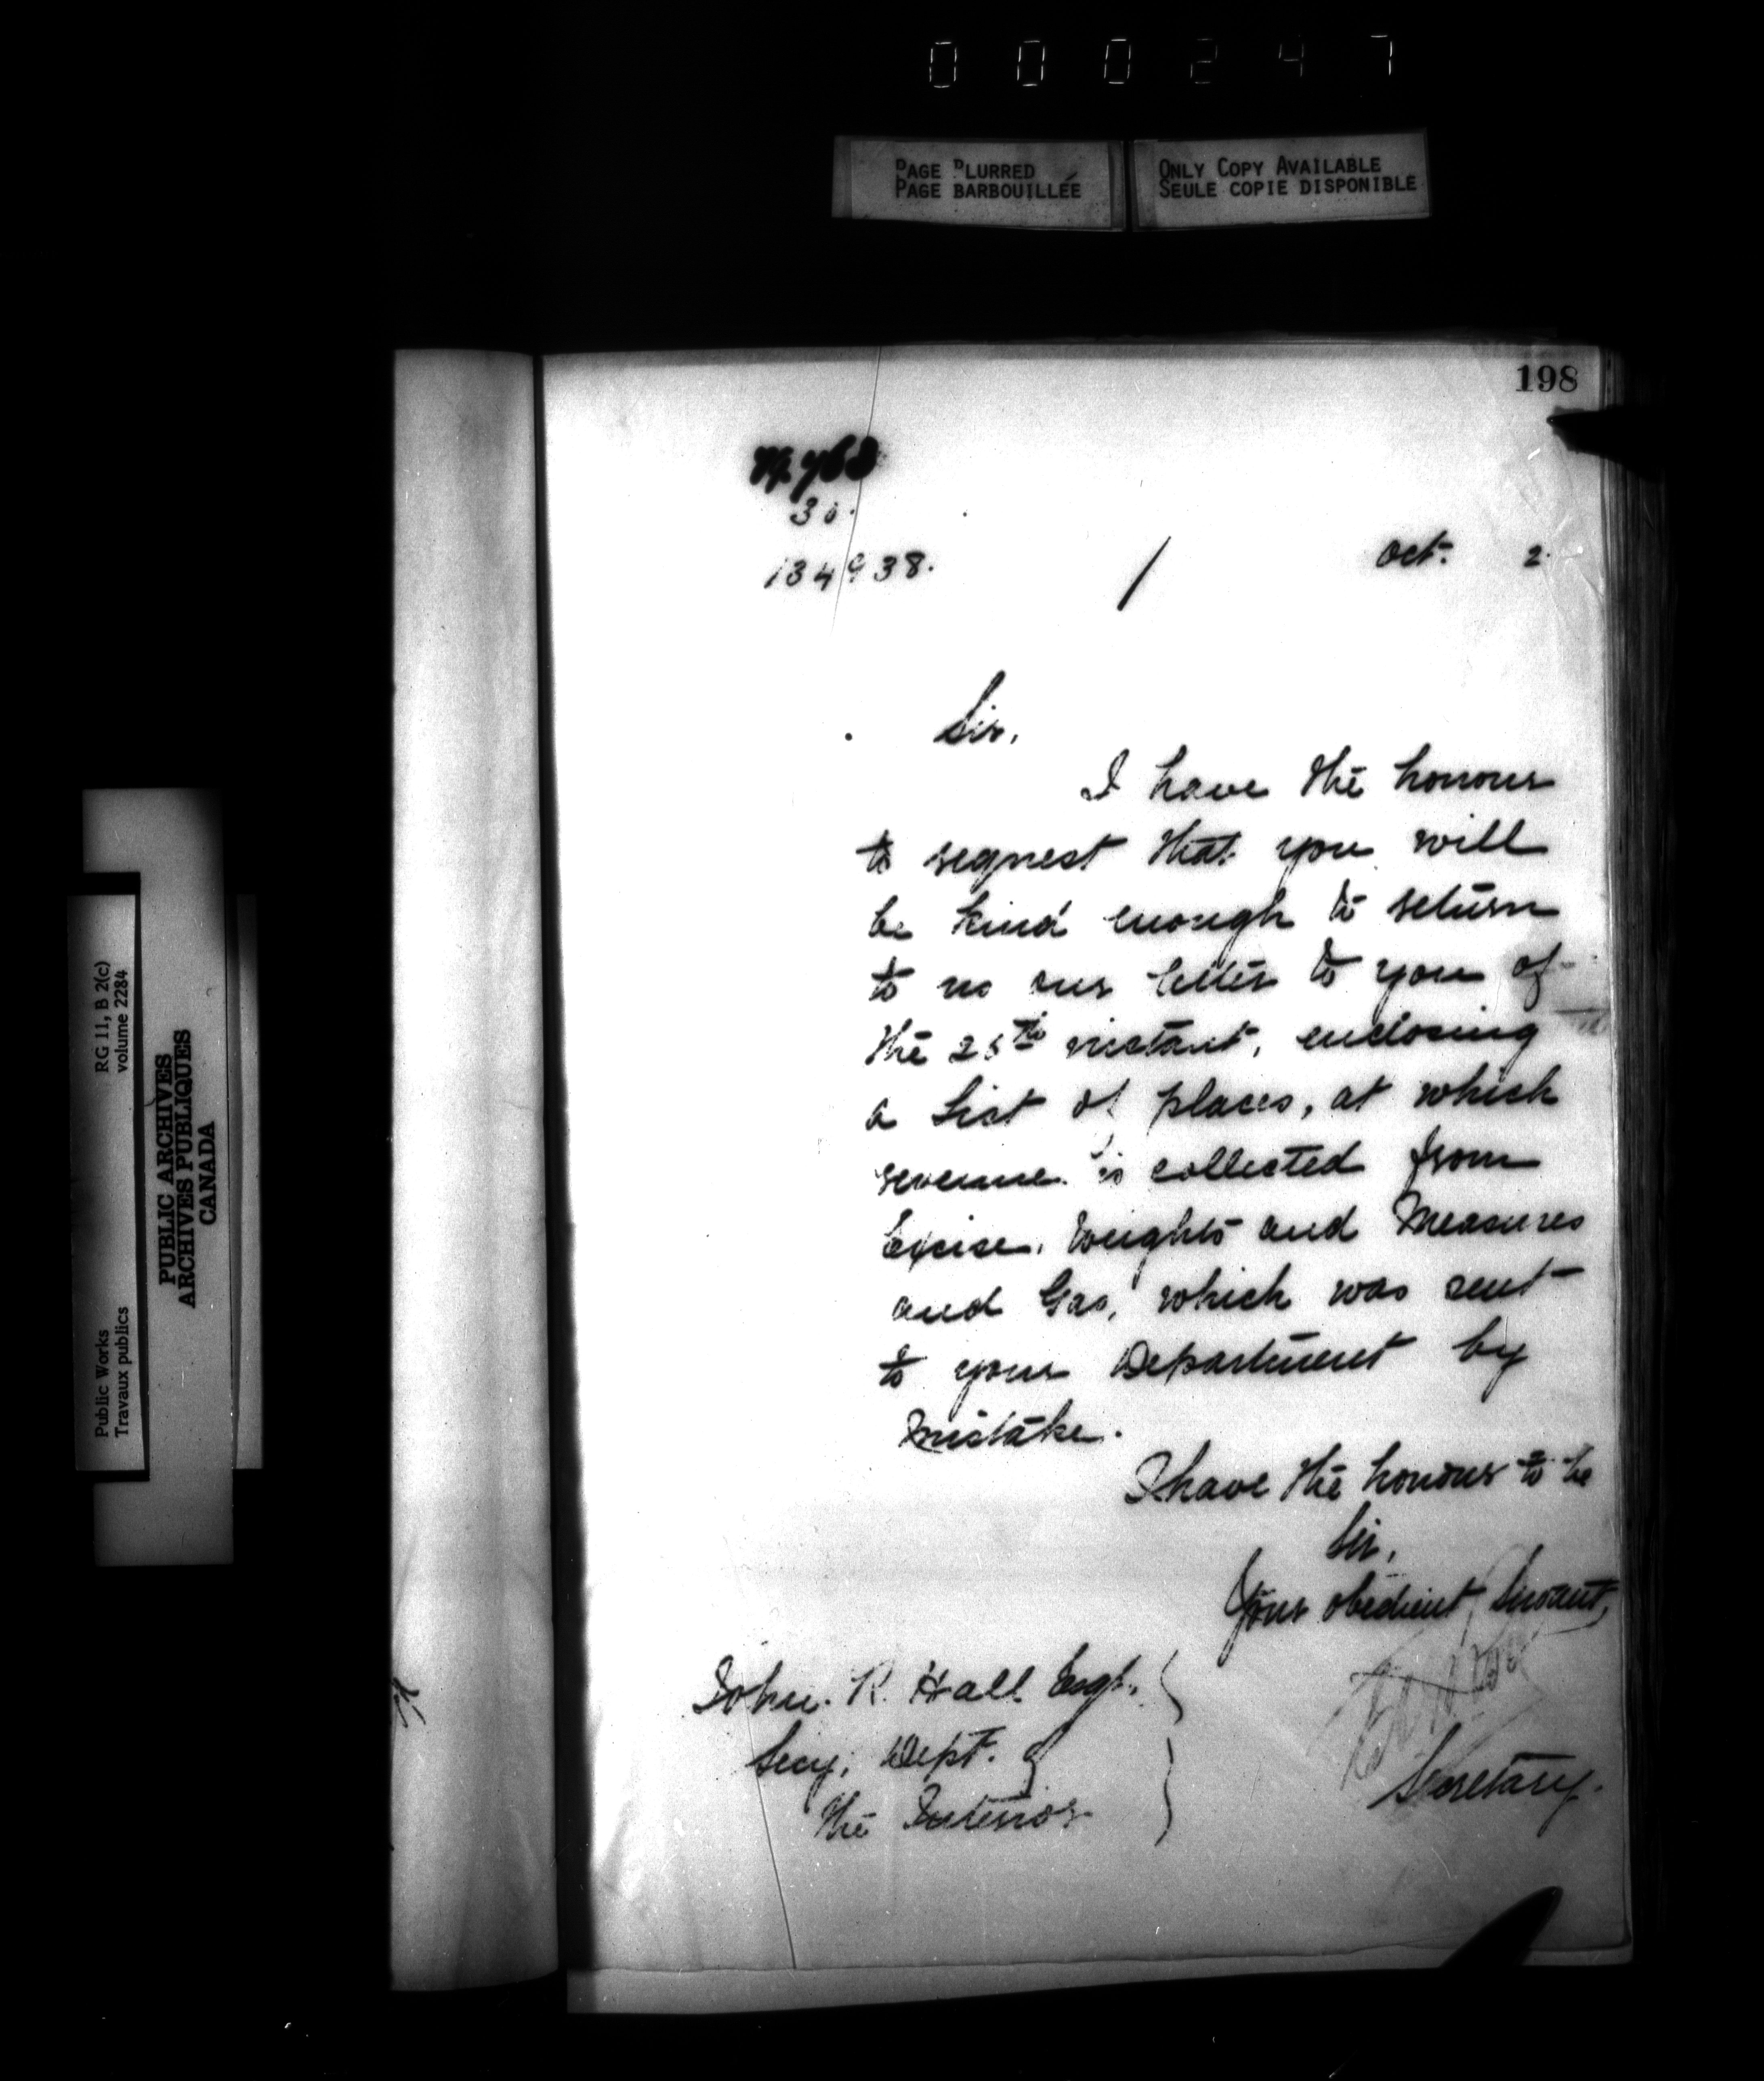 000247
PAGE BLURRED
PAGE BARBOUILLÉE
ONLY COPY AVAILABLE
SEULE COPIE DISPONIBLE
198
30.
134938.
1
Oct. 2.
Sir,
I have the honour
to request that you will
be kind enough to return
to us our letter to you of
the 25th instant, enclosing
a List of places, at which
revenue is collected from
Excise, Weights and Measures
and Gas, which was sent
to your Department by
mistake.
I have the honour to be
Sir,
Your obedient Servant,
Secretary.
John. R. Hall Esqr.
Secy, Dept. of
the Interior
Public Works
Travaux publics
RG 11, B 2(c)
volume 2284
PUBLIC ARCHIVES
ARCHIVES PUBLIQUES
CANADA